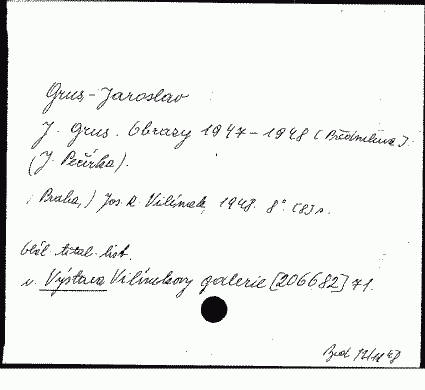 Grus, Jaroslav
J. Grus. Obrazy 1947-1948 (Předmluva J.
(J. Pečírka).
(Praha,) Jos. R. Vilímek, 1948. 8°. [8] s.
obál. titul. list.
v. Výstava Vilímkovy galerie [206682] 71.